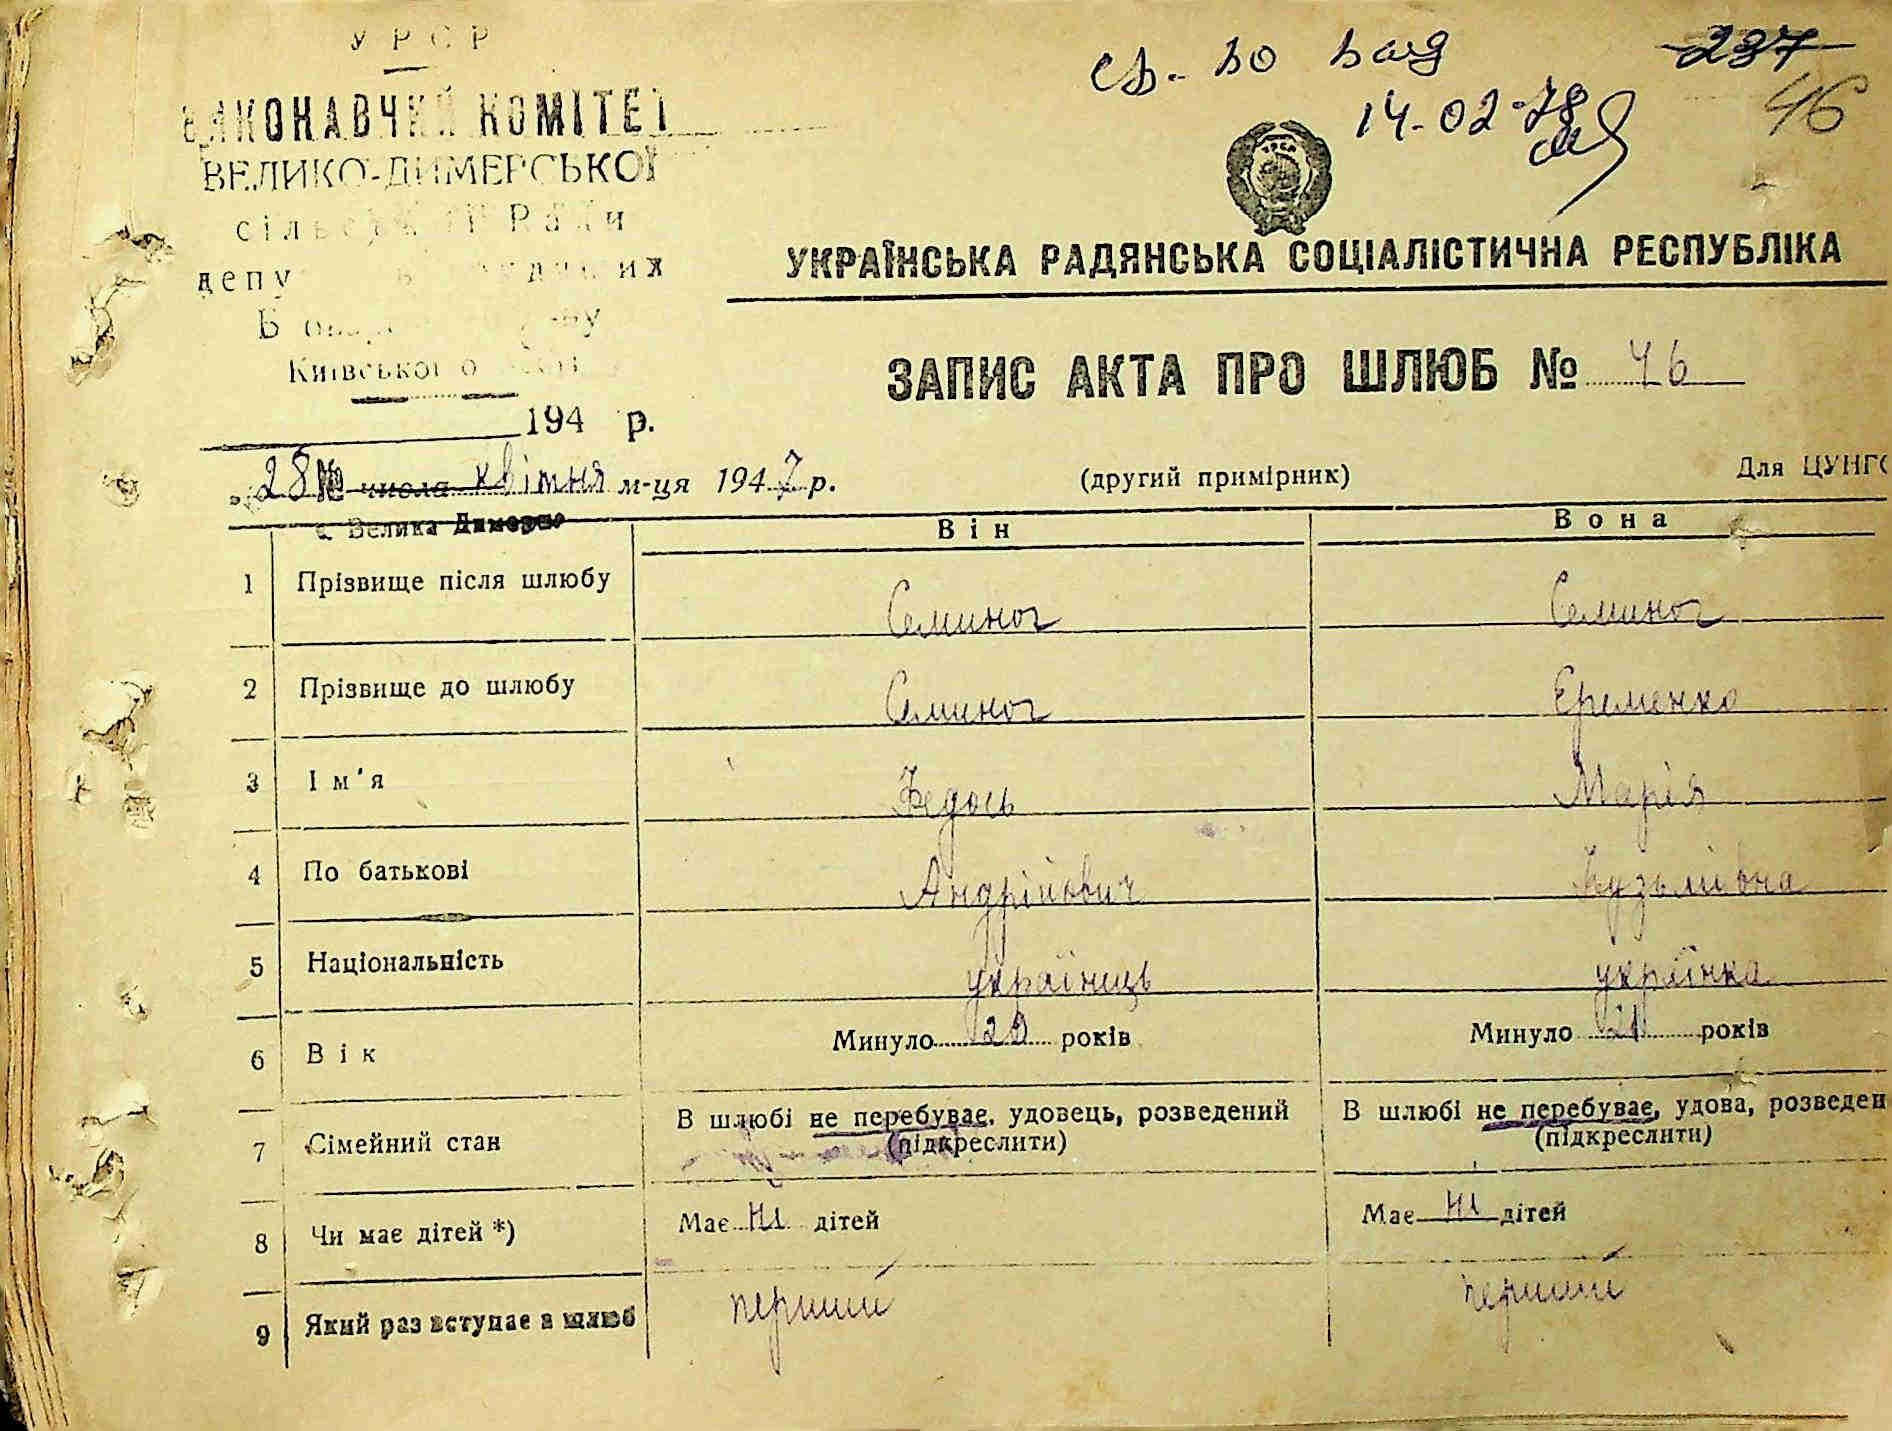 УРСР
ВИКОНАВЧИЙ КОМІТЕТ
ВЕЛИКО-ДИМЕРСЬКОЇ
сільської Ради
депу
Київського
194 р.
237
46
14-02-78
УКРАЇНСЬКА РАДЯНСЬКА СОЦІАЛІСТИЧНА РЕСПУБЛІКА
ЗАПИС АКТА ПРО ШЛЮБ № 46
28 числа квітня м-ця 1947 р.
(другий примірник)
Для ЦУНГО
с. Велика Димерка
Він
Вона
1 Прізвище після шлюбу Семиног Семиног
2 Прізвище до шлюбу Семиног Єременко
3 Ім'я Федось Марія
4 По батькові Андрійович Кузьмівна
5 Національність українець українка
6 Вік Минуло років Минуло 21 років
7 Сімейний стан В шлюбі не перебуває, удовець, розведений (підкреслити) В шлюбі не перебуває, удова, розведен (підкреслити)
8 Чи має дітей *) Має ні дітей Має ні дітей
9 Який раз вступає в шлюб перший перший